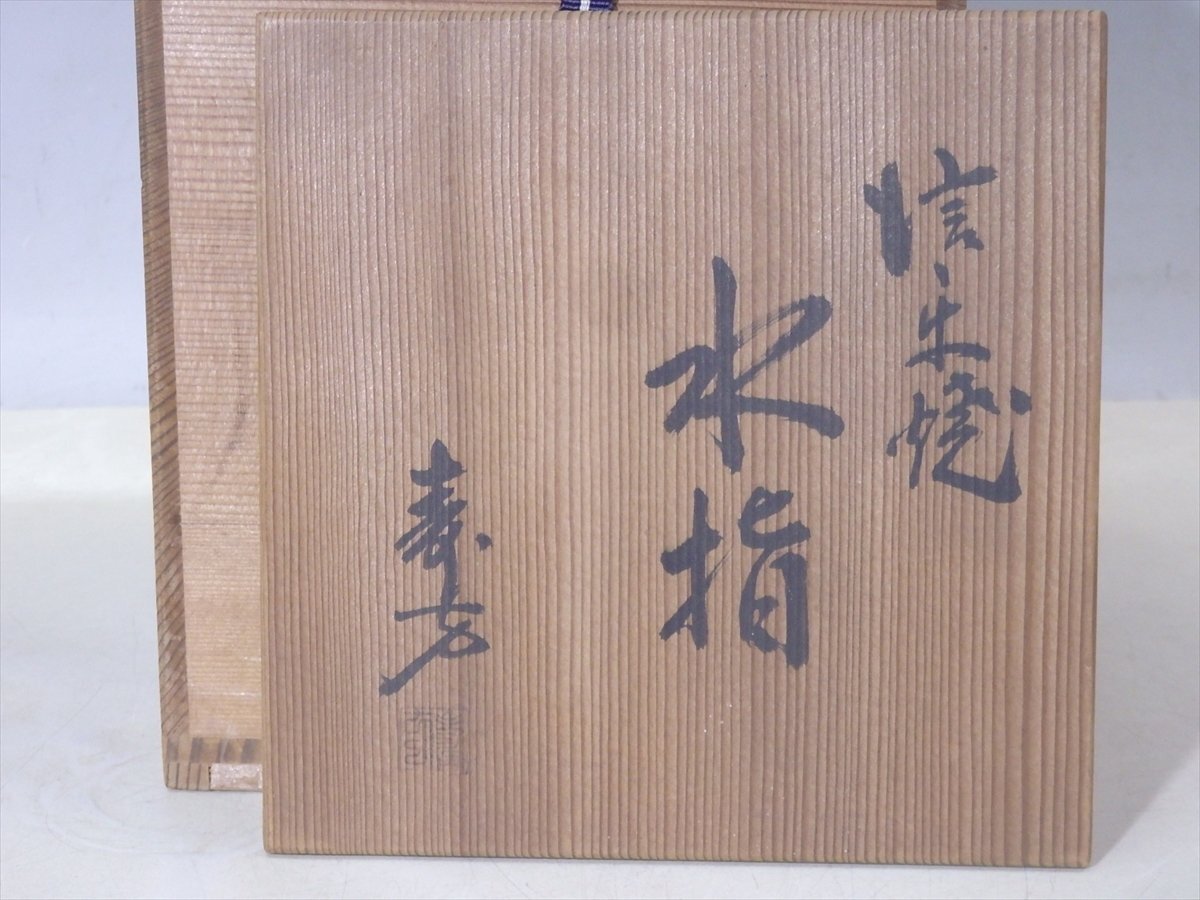 信楽焼
水指
寿方